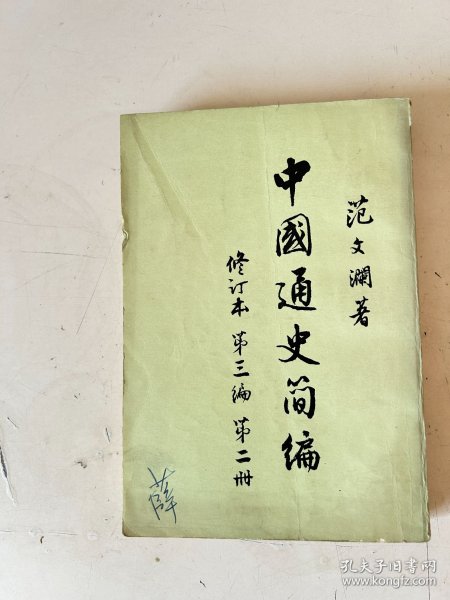 范文瀾著
中國通史简编
修订本 第三编 第二册
薛
孔夫子旧书网
www.kongfz.com